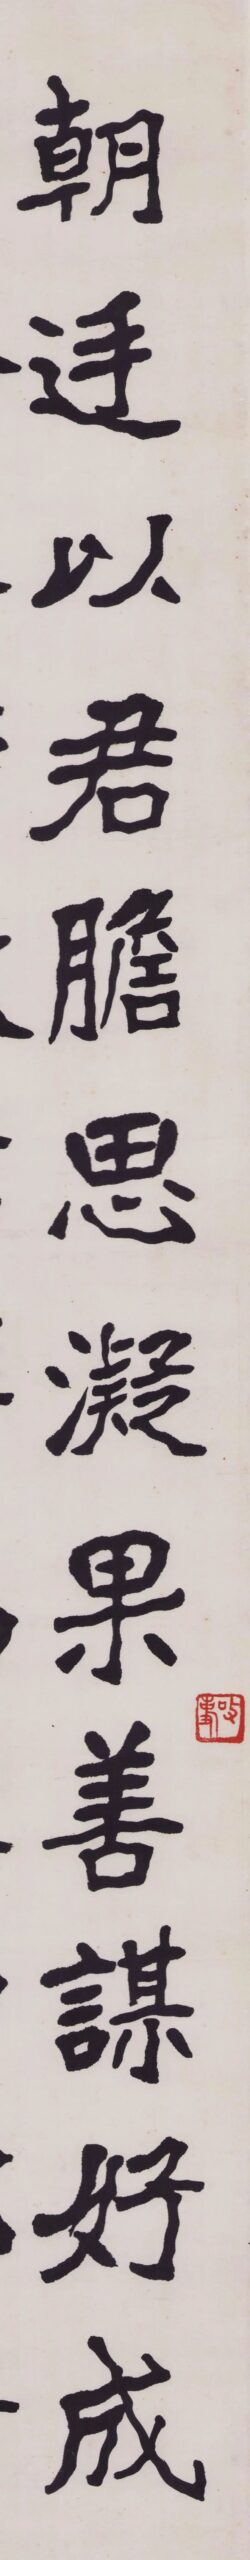 朝廷以君膽思凝果善謀好成